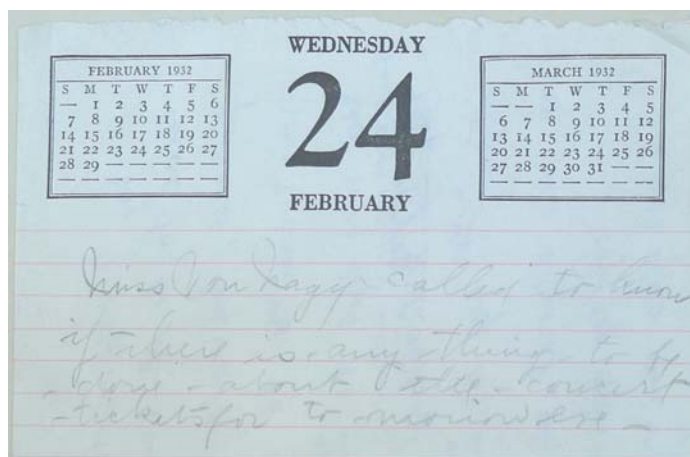 WEDNESDAY
24
FEBRUARY
FEBRUARY 1932
S M T W T F S
— 1 2 3 4 5 6
7 8 9 10 11 12 13
14 15 16 17 18 19 20
21 22 23 24 25 26 27
28 29 — — — — —
— — — — — — —
MARCH 1932
S M T W T F S
— — 1 2 3 4 5
6 7 8 9 10 11 12
13 14 15 16 17 18 19
20 21 22 23 24 25 26
27 28 29 30 31 — —
— — — — — — —
Miss Von Nagy called to know
if there is any thing to be
done - about the concert
- tickets for to morrow eve -